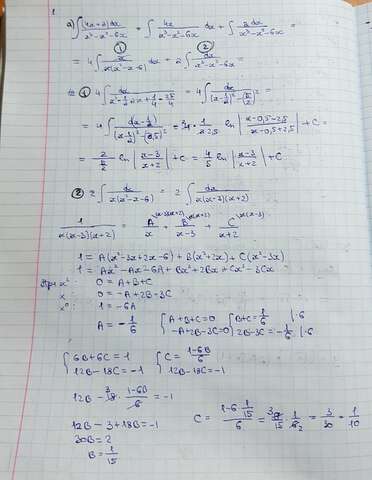 1
a) ∫ (4x+2)dx / x³-x²-6x = ∫ 4x / x³-x²-6x dx + ∫ 2dx / x³-x²-6x =
= 4 ∫ x / x(x²-x-6) dx + 2 ∫ dx / x³-x²-6x =
① 4 ∫ dx / x²-½·2x+¼-25/4 = 4 ∫ dx / (x-½)²-(5/2)² =
= 4 ∫ d(x-½) / (x-½)²-(2,5)² = 4· 1/2·2,5 ln |x-0,5-2,5 / x-0,5+2,5| + C =
ln |x-3 / x+2| + C = 4/5 ln |x-3 / x+2| + C
② 2 ∫ dx / x(x²-x-6) = 2 ∫ dx / x(x-3)(x+2)
1 / x(x-3)(x+2) = A / x + B / x-3 + C / x+2
1 = A(x²-3x+2x-6) + B(x²+2x) + C(x²-3x)
1 = Ax²-Ax-6A + Bx²+2Bx + Cx²-3Cx
При x²: 0 = A+B+C
x: 0 = -A+2B-3C
x⁰: 1 = -6A
A = -1/6 { A+B+C=0 -A+2B-3C=0 { B+C=1/6 |·6 2B-3C=-1/6 |·6
{ 6B+6C=1 12B-18C=-1 { C = 1-6B / 6 12B-18C=-1
12B - · 1-6B / 6 = -1
12B - 3 + 18B = -1
30B = 2
B = 1/15
C = 1-6·1/15 / 6 = · 1/6 = 3/30 = 1/10